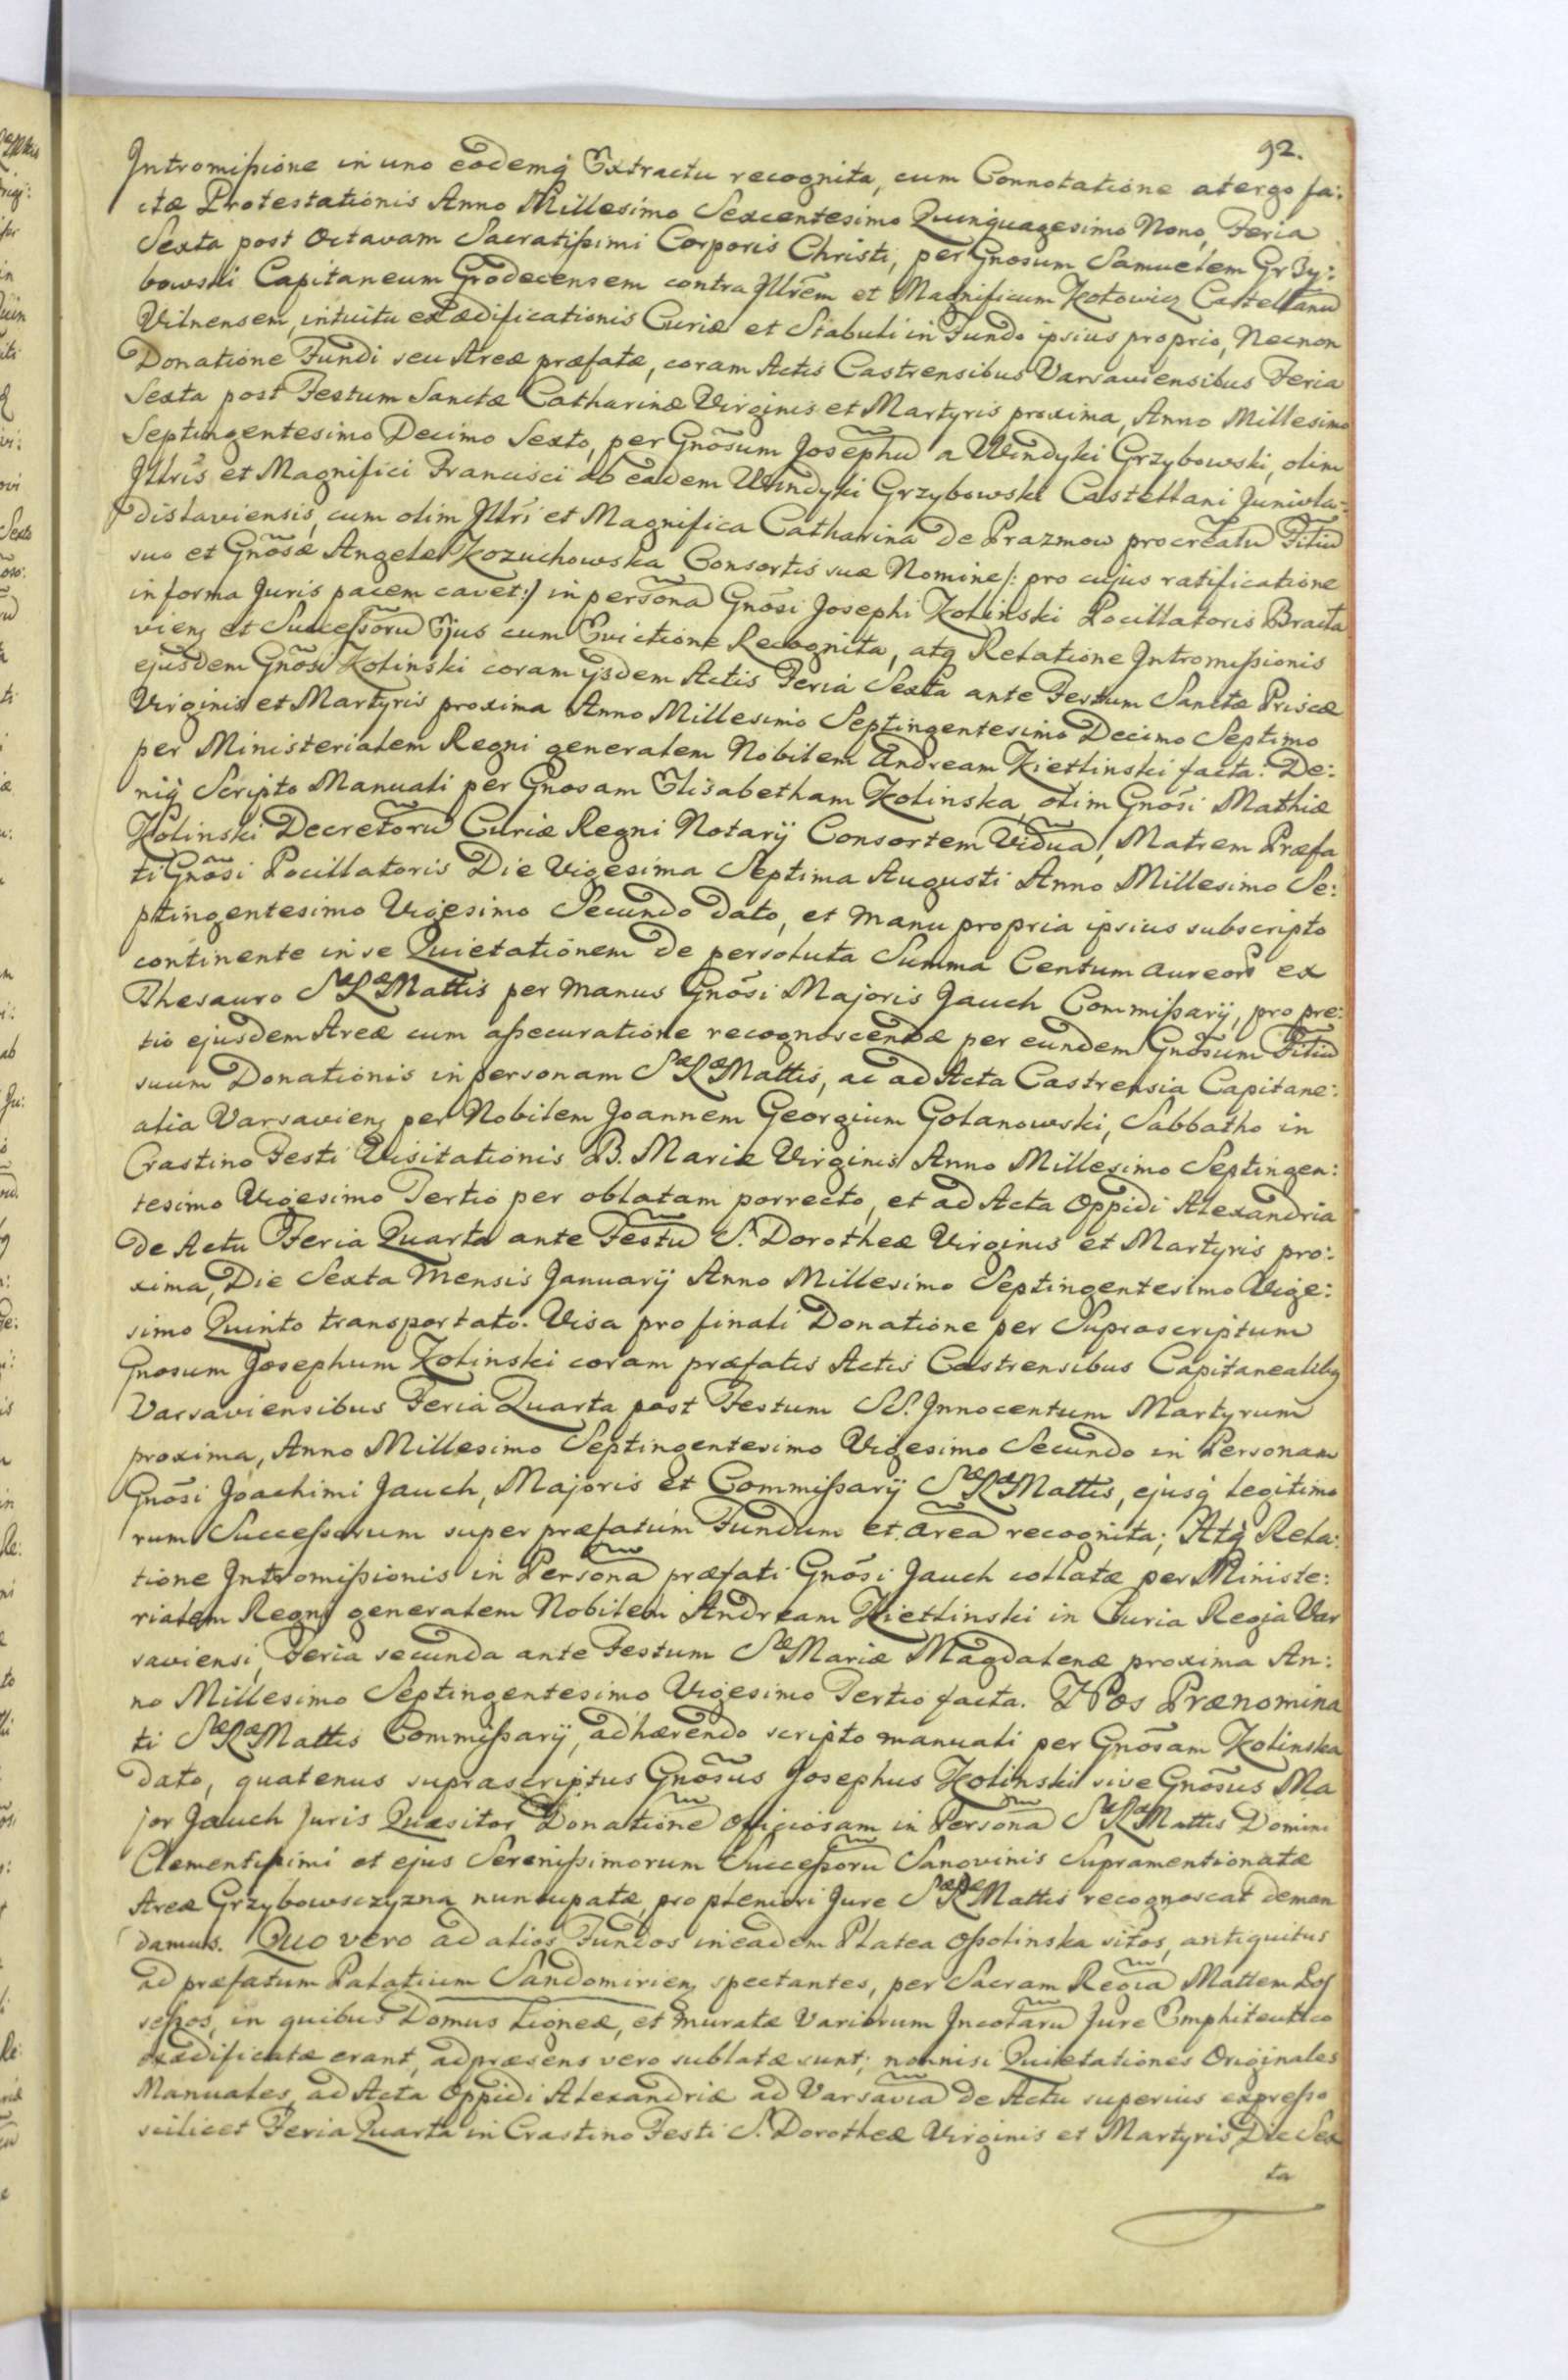 92.
Intromißione in uno eodemq́ Extractu recognita, cum Connotatione atergo fa:
ctæ Protestationis Anno Millesimo Sexcentesimo Quinquagesimo Nono, Feria
Sexta post Octavam Sacratißimi Corporis Christi, per Gnosum Samuelem Grzy:
bowski Capitaneum Grodecensem contra Jllrem et Magnificum Kotowicz Castellanũ
Vilnensem, intuitu exædificationis Curiæ et Stabuli in Fundo ipsius proprio, Necnon
Donatione Fundi seu Areæ præfatæ, coram Actis Castrensibus Varsaviensibus Feria
Sexta post Festum Sanctæ Catharinæ Virginis et Martyris proxima, Anno Millesimo
Septingentesimo Decimo Sexto, per Gnõsum Josephũ a Windyki Grzybowski, olim
Jllris et Magnifici Francisci ab eadem Windyki Grzybowski Castellani Junivla:
dislaviensis, cum olim Jllri et Magnifica Catharina de Prazmow procreatũ Filiũ
suo et Gnõsæ Angelæ Kozuchowska Consortis suæ Nomine /: pro cujus ratificatione
in forma Juris pacem cavet:/ in persona Gnõsi Josephi Kolinski Pocillatoris Bracla
vien, et Succeßorũ Ejus cum Evictione Recognita, atq Relatione Intromißionis
ejusdem Gnõsi Kolinski coram ijsdem Actis Feria Sexta ante Festum Sanctæ Priscæ
Virginis et Martyris proxima Anno Millesimo Septingentesimo Decimo Septimo
per Ministerialem Regni generalem Nobilem Andream Kietlinski facta. De:
niq́ Scripto Manuali per Gnosam Elisabetham Kolinska, olim Gnõsi Mathiæ
Kolinski Decretorũ Curiæ Regni Notarij Consortem Viduã, Matrem Præfa
ti Gnõsi Pocillatoris Die Vigesima Septima Augusti Anno Millesimo Se:
ptingentesimo Vigesimo Secundo dato, et manu propria ipsius subscripto
continente in se Quietationem de persoluta Summa Centum aureorũ ex
Thesauro Sæ Ræ Mattis per manus Gnõsi Majoris Jauch Commißarij, pro pre:
tio ejusdem Areæ cum aßecuratione recognoscendæ per eundem Gnõsum Filiũ
suum Donationis in personam Sæ Ræ Mattis, ac ad Acta Castrensia Capitane:
alia Varsavien, per Nobilem Joannem Georgium Golanowski, Sabbatho in
Crastino Festi Visitationis B. Mariæ Virginis Anno Millesimo Septingen:
tesimo Vigesimo Tertio per oblatam porrecto, et ad Acta Oppidi Alexandria
de Actu Feria Quarta ante Festũ S. Dorotheæ Virginis et Martyris pro:
xima, Die Sexta Mensis Januarij Anno Millesimo Septingentesimo Vige:
simo Quinto transportato. Visa pro finali Donatione per Suprascriptum
Gnosum Josephum Kolinski coram præfatis Actis Castrensibus Capitanealibq
Varsaviensibus Feria Quarta post Festum SS. Innocentum Martyrum
proxima, Anno Millesimo Septingentesimo Vigesimo Secundo in Personam
Gnõsi Joachimi Jauch, Majoris et Commißarij Sæ Ræ Mattis, ejusq́ legitimo
rum Succeßorum super præfatum Fundum et areã recognita; Atq́ Rela:
tione Intromißionis in Personã præfati Gnõsi Jauch collatæ per Ministe:
rialem Regni generalem Nobilem Andream Kietlinski in Curia Regia Var
saviensi, Feria secunda ante Festum Sæ Mariæ Magdalenæ proxima An:
no Millesimo Septingentesimo Vigesimo Tertio facta. Nos Prænomina
ti Sæ Ræ Mattis Commißarij, adhærendo scripto manuali per Gnõsam Kolinska
dato, quatenus suprascriptus Gnõsus Josephus Kolinski sive Gnõsus Ma
jor Jauch Juris Quæsitor Donationẽ officiosam in Personã Sæ Ræ Mattis Domini
Clementißimi et ejus Serenißimorum Succeßorũ Sanovinis Supramentionatæ
Areæ Grzybowsczyzna nuncupatæ, pro pleniori Jure Sæ Ræ Mattis recognoscat deman
damus. Quo vero ad alios Fundos in eadem Platea Oßolinska sitos, antiquitus
ad præfatum Palatium Sandomirien, spectantes, per Sacram Regiã Mattem Pos
seßos, in quibus Domus Ligneæ, et muratæ Variorum Incolarũ Jure Emphiteutico
exædificatæ erant, ad præsens vero sublatæ sunt; nonnisi Quietationes Originales
Manuales, ad Acta Oppidi Alexandriæ ad Varsaviã de Actu superius expreßo
scilicet Feria Quarta in Crastino Festi S. Dorotheæ Virginis et Martyris Die Sex
ta